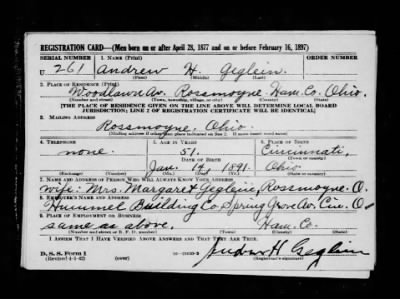 REGISTRATION CARD—(Men born on or after April 28, 1877 and on or before February 16, 1897)
SERIAL NUMBER 1. NAME (Print) ORDER NUMBER
U 261 Andrew H. Geglein.
(First) (Middle) (Last)
2. PLACE OF RESIDENCE (Print)
Woodlawn Av. Rossmoyne. Ham. Co. Ohio.
(Number and street) (Town, township, village, or city) (County) (State)
[THE PLACE OF RESIDENCE GIVEN ON THE LINE ABOVE WILL DETERMINE LOCAL BOARD
JURISDICTION; LINE 2 OF REGISTRATION CERTIFICATE WILL BE IDENTICAL]
3. MAILING ADDRESS
Rossmoyne. Ohio.
[Mailing address if other than place indicated on line 2. If same insert word same]
4. TELEPHONE 5. AGE IN YEARS 6. PLACE OF BIRTH
none. 51. Cincinnati,
DATE OF BIRTH
Jan. 14, 1891. Ohio
7. NAME AND ADDRESS OF PERSON WHO WILL ALWAYS KNOW YOUR ADDRESS
wife: Mrs. Margaret Geglein, Rossmoyne. O.
8. EMPLOYER'S NAME AND ADDRESS
Hummel Building Co. Spring Grove Av. Cin. O.
9. PLACE OF EMPLOYMENT OR BUSINESS
same as above. Ham. Co.
(Number and street or R. F. D. number) (Town) (County) (State)
I AFFIRM THAT I HAVE VERIFIED ABOVE ANSWERS AND THAT THEY ARE TRUE.
D. S. S. Form 1
(Revised 4-1-42) (over)
Andrew H Geglein
(Registrant's signature)